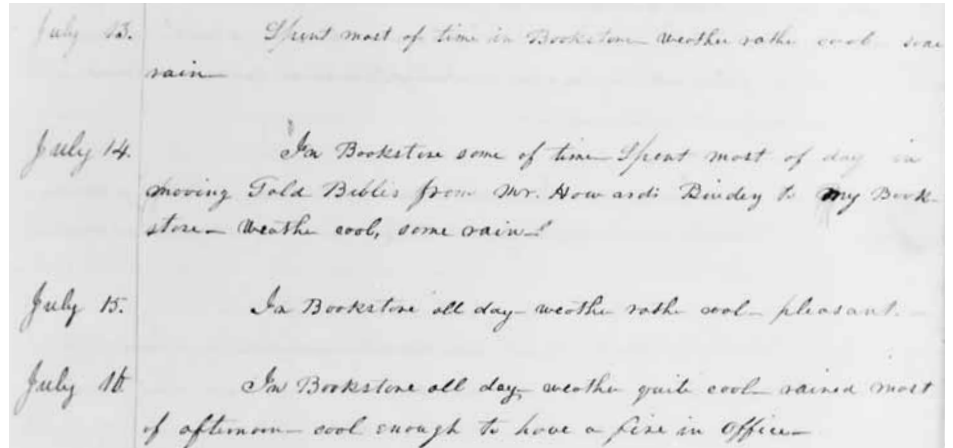 July 13. Spent most of time in Bookstore – weather rathe cool – some
rain –
July 14. In Bookstore some of time – Spent most of day in
moving Told Bibles from Mr. Howards Bindey to my Book-
store – Weathe cool, some rain –
July 15. In Bookstore all day – weathe rathe cool – pleasant. –
July 16 In Bookstore all day – weathe quite cool – rained most
of afternoon – cool enough to have a fire in Office –